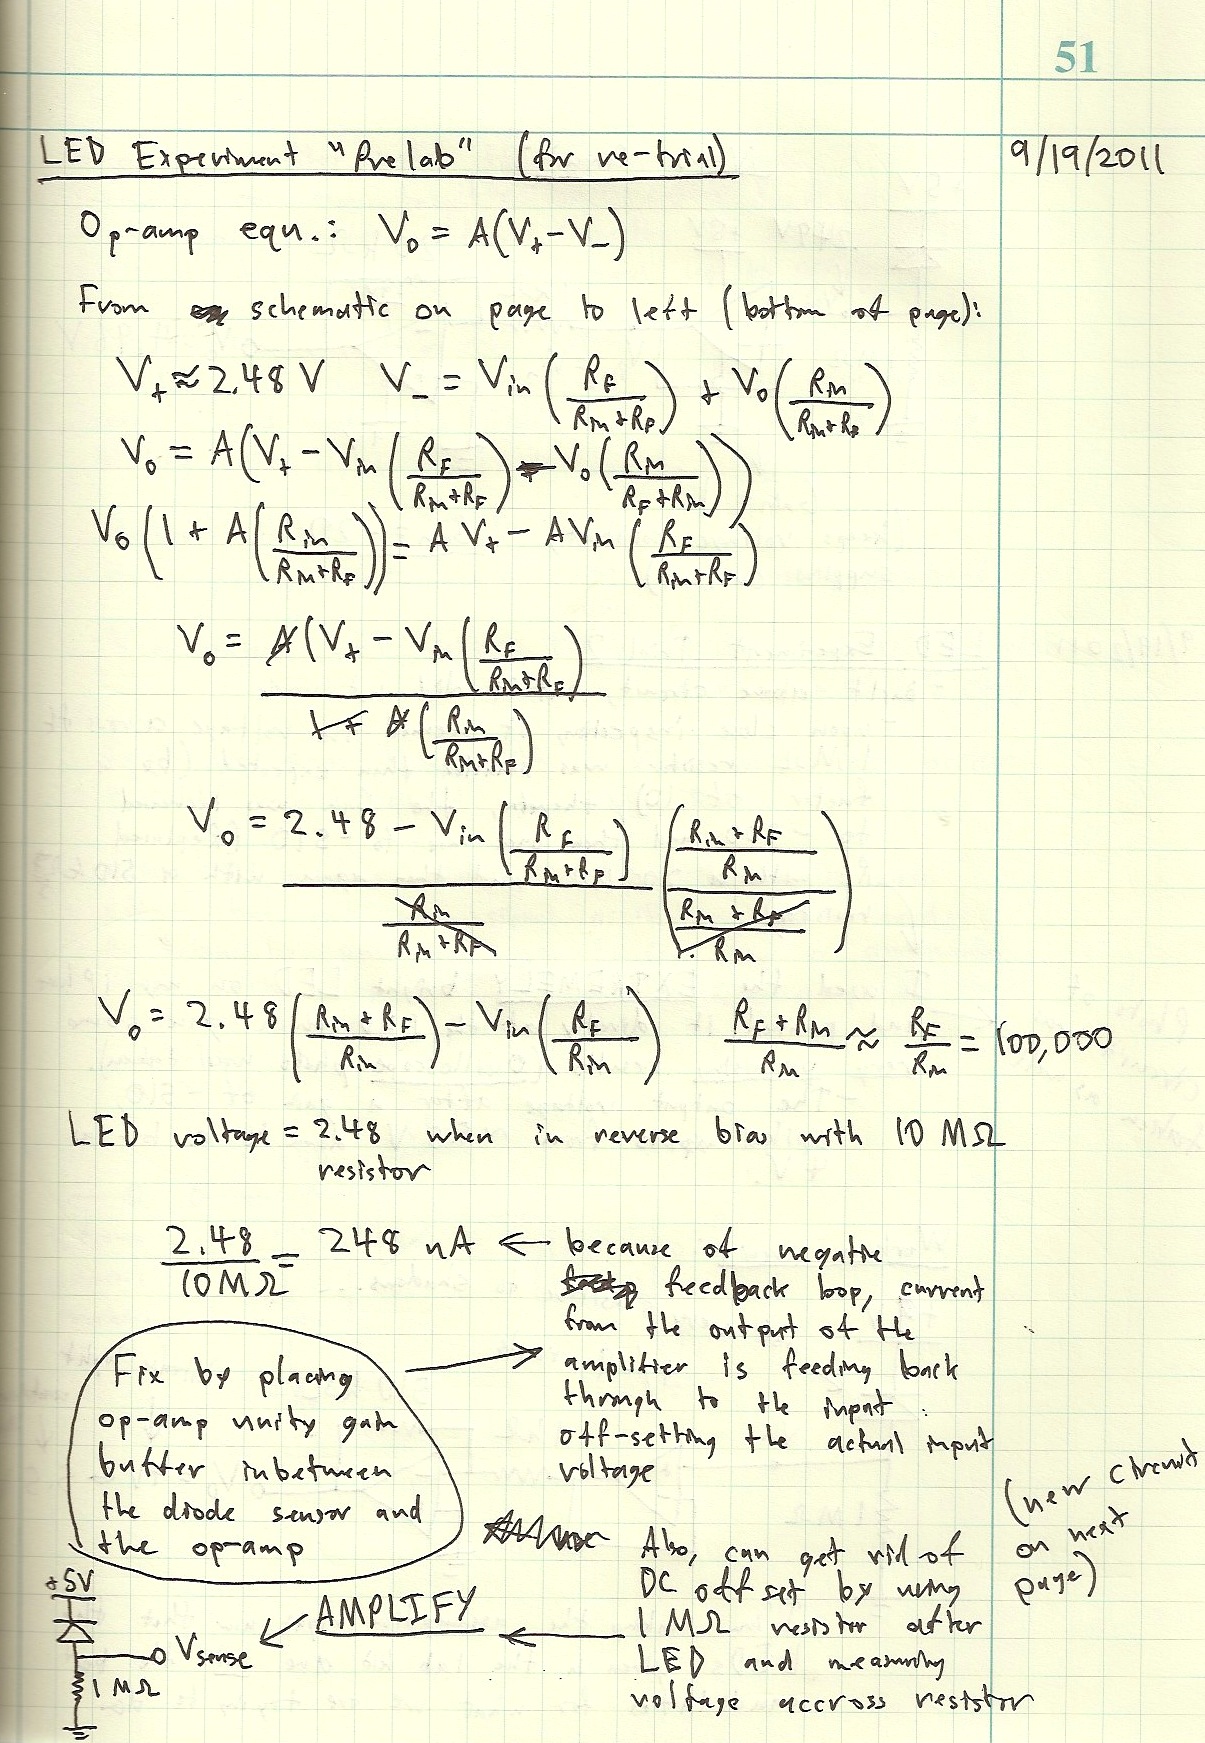 51
LED Experiment "Prelab" (for re-trial) 9/19/2011
Op-amp equn.: V₀ = A(V₊ - V₋)
From schematic on page to left (bottom of page):
V₊ ≈ 2.48 V V₋ = Vin (RF / (Rin + RF)) + V₀ (Rin / (Rin + RF))
V₀ = A(V₊ - Vin (RF / (Rin + RF)) - V₀ (Rin / (RF + Rin)))
V₀ (1 + A (Rin / (Rin + RF))) = A V₊ - A Vin (RF / (Rin + RF))
V₀ = A(V₊ - Vin (RF / (Rin + RF)) / 1 + A (Rin / (Rin + RF))
V₀ = 2.48 - Vin (RF / (Rin + RF)) / (Rin / (Rin + RF)) (((Rin + RF) / Rin) / ((Rin + RF) / Rin))
V₀ = 2.48 ((Rin + RF) / Rin) - Vin (RF / Rin) (RF + Rin) / Rin ≈ RF / Rin = 100,000
LED voltage = 2.48 when in reverse bias with 10 MΩ
resistor
2.48 / 10MΩ = 248 nA ← because of negative
feedback loop, current
from the output of the
amplifier is feeding back
through to the input
off-setting the actual input
voltage
Fix by placing
op-amp unity gain
buffer inbetween
the diode sensor and
the op-amp
(new circuit
on next
page)
Also, can get rid of
DC offset by using
1 MΩ resistor after
LED and measuring
voltage accross resistor
AMPLIFY
+5V
Vsense
1 MΩ